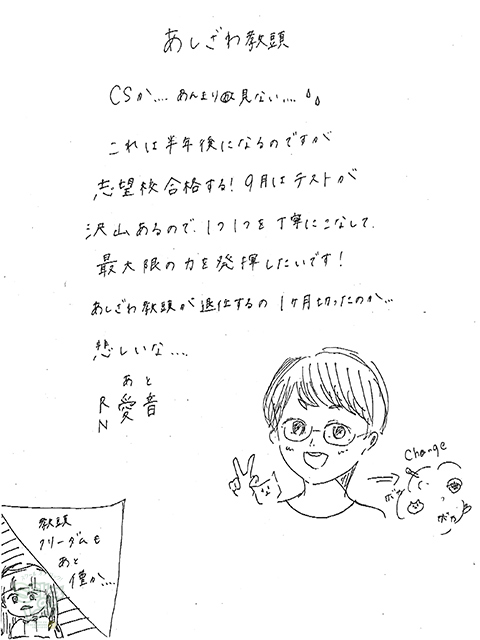 あしざわ教頭
CSか…. あんまり見ない….
これは半年後になるのですが
志望校合格する! 9月はテストが
沢山あるので、1つ1つを丁寧にこなして、
最大限の力を発揮したいです!
あしざわ教頭が退任するの1ヶ月切ったのか…
悲しいな….
あと
RN 愛音
Change
ボッ
ボカ
教頭
フリーダムも
あと
僅か….